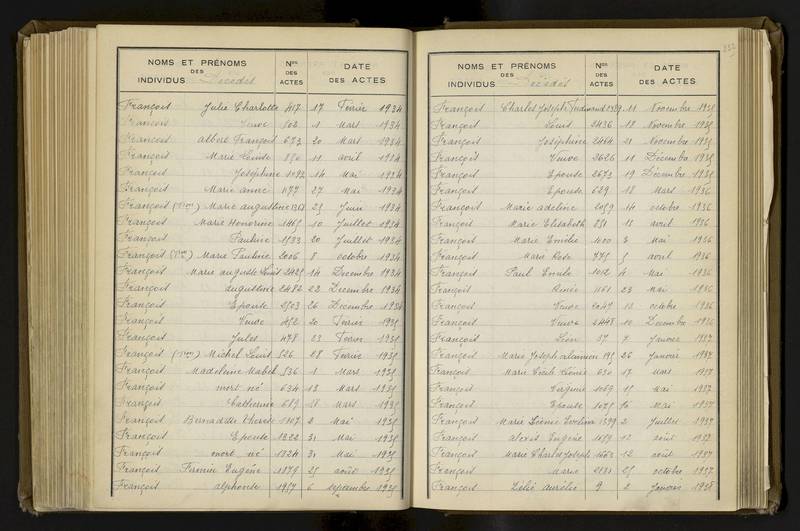 NOMS ET PRÉNOMS
DES
INDIVIDUS Décédés
Nos
DES
ACTES
DATE
DES ACTES
François Julie Charlotte 417 17 Février 1934
François Veuve 602 1 Mars 1934
François albert François 673 20 Mars 1934
François Marie Louise 850 11 avril 1934
François Joséphine 14 Mai 1934
François Marie anne 1177 27 Mai 1934
François Marie augustine 1361 25 Juin 1934
François Marie Honorine 1465 10 Juillet 1934
François Pauline 1533 20 Juillet 1934
François Marie Pauline 2006 8 octobre 1934
François Marie auguste Louis 2425 14 Decembre 1934
François augustine 2482 22 Decembre 1934
François Epouse 2503 26 Decembre 1934
François Veuve 452 20 Fevrier 1935
François Jules 478 23 Fevrier 1935
François Michel Louis 526 28 Fevrier 1935
François Madeleine Mabel 536 1 Mars 1935
François mort né 634 13 Mars 1935
François Catherine 689 18 Mars 1935
François Bernadette Therese 1107 2 Mai 1935
François Epouse 1322 31 Mai 1935
François mort né 1324 31 Mai 1935
François Firmin Eugène 1879 25 août 1935
François alphonse 1957 6 septembre 1935
NOMS ET PRÉNOMS
DES
INDIVIDUS Décédés
Nos
DES
ACTES
DATE
DES ACTES
François Charles Joseph Ferdinand 11 Novembre 1935
François Louis 2436 18 Novembre 1935
François Joséphine 2464 21 Novembre 1935
François Veuve 2626 11 Décembre 1935
François Epouse 2673 19 Décembre 1935
François Epouse 629 18 Mars 1936
François Marie adeline 2059 14 octobre 1936
François Marie Elisabeth 851 18 avril 1936
François Marie Emilie 1000 3 Mai 1936
François Marie Rose 775 5 avril 1936
François Paul Emile 1012 4 Mai 1936
François Renée 1161 23 Mai 1936
François Veuve 2047 12 octobre 1936
François Veuve 2448 10 Decembre 1936
François Léon 57 7 Janvier 1937
François Marie Joseph 195 26 Janvier 1937
François Marie 630 17 Mars 1937
François Virginie 1069 15 Mai 1937
François Epouse 1075 16 Mai 1937
François Marie 1399 2 Juillet 1937
François alexis Eugène 1659 12 août 1937
François Marie Charles Joseph 1663 12 août 1937
François Marie 25 octobre 1937
François Zélie aurélie 9 2 Janvier 1938